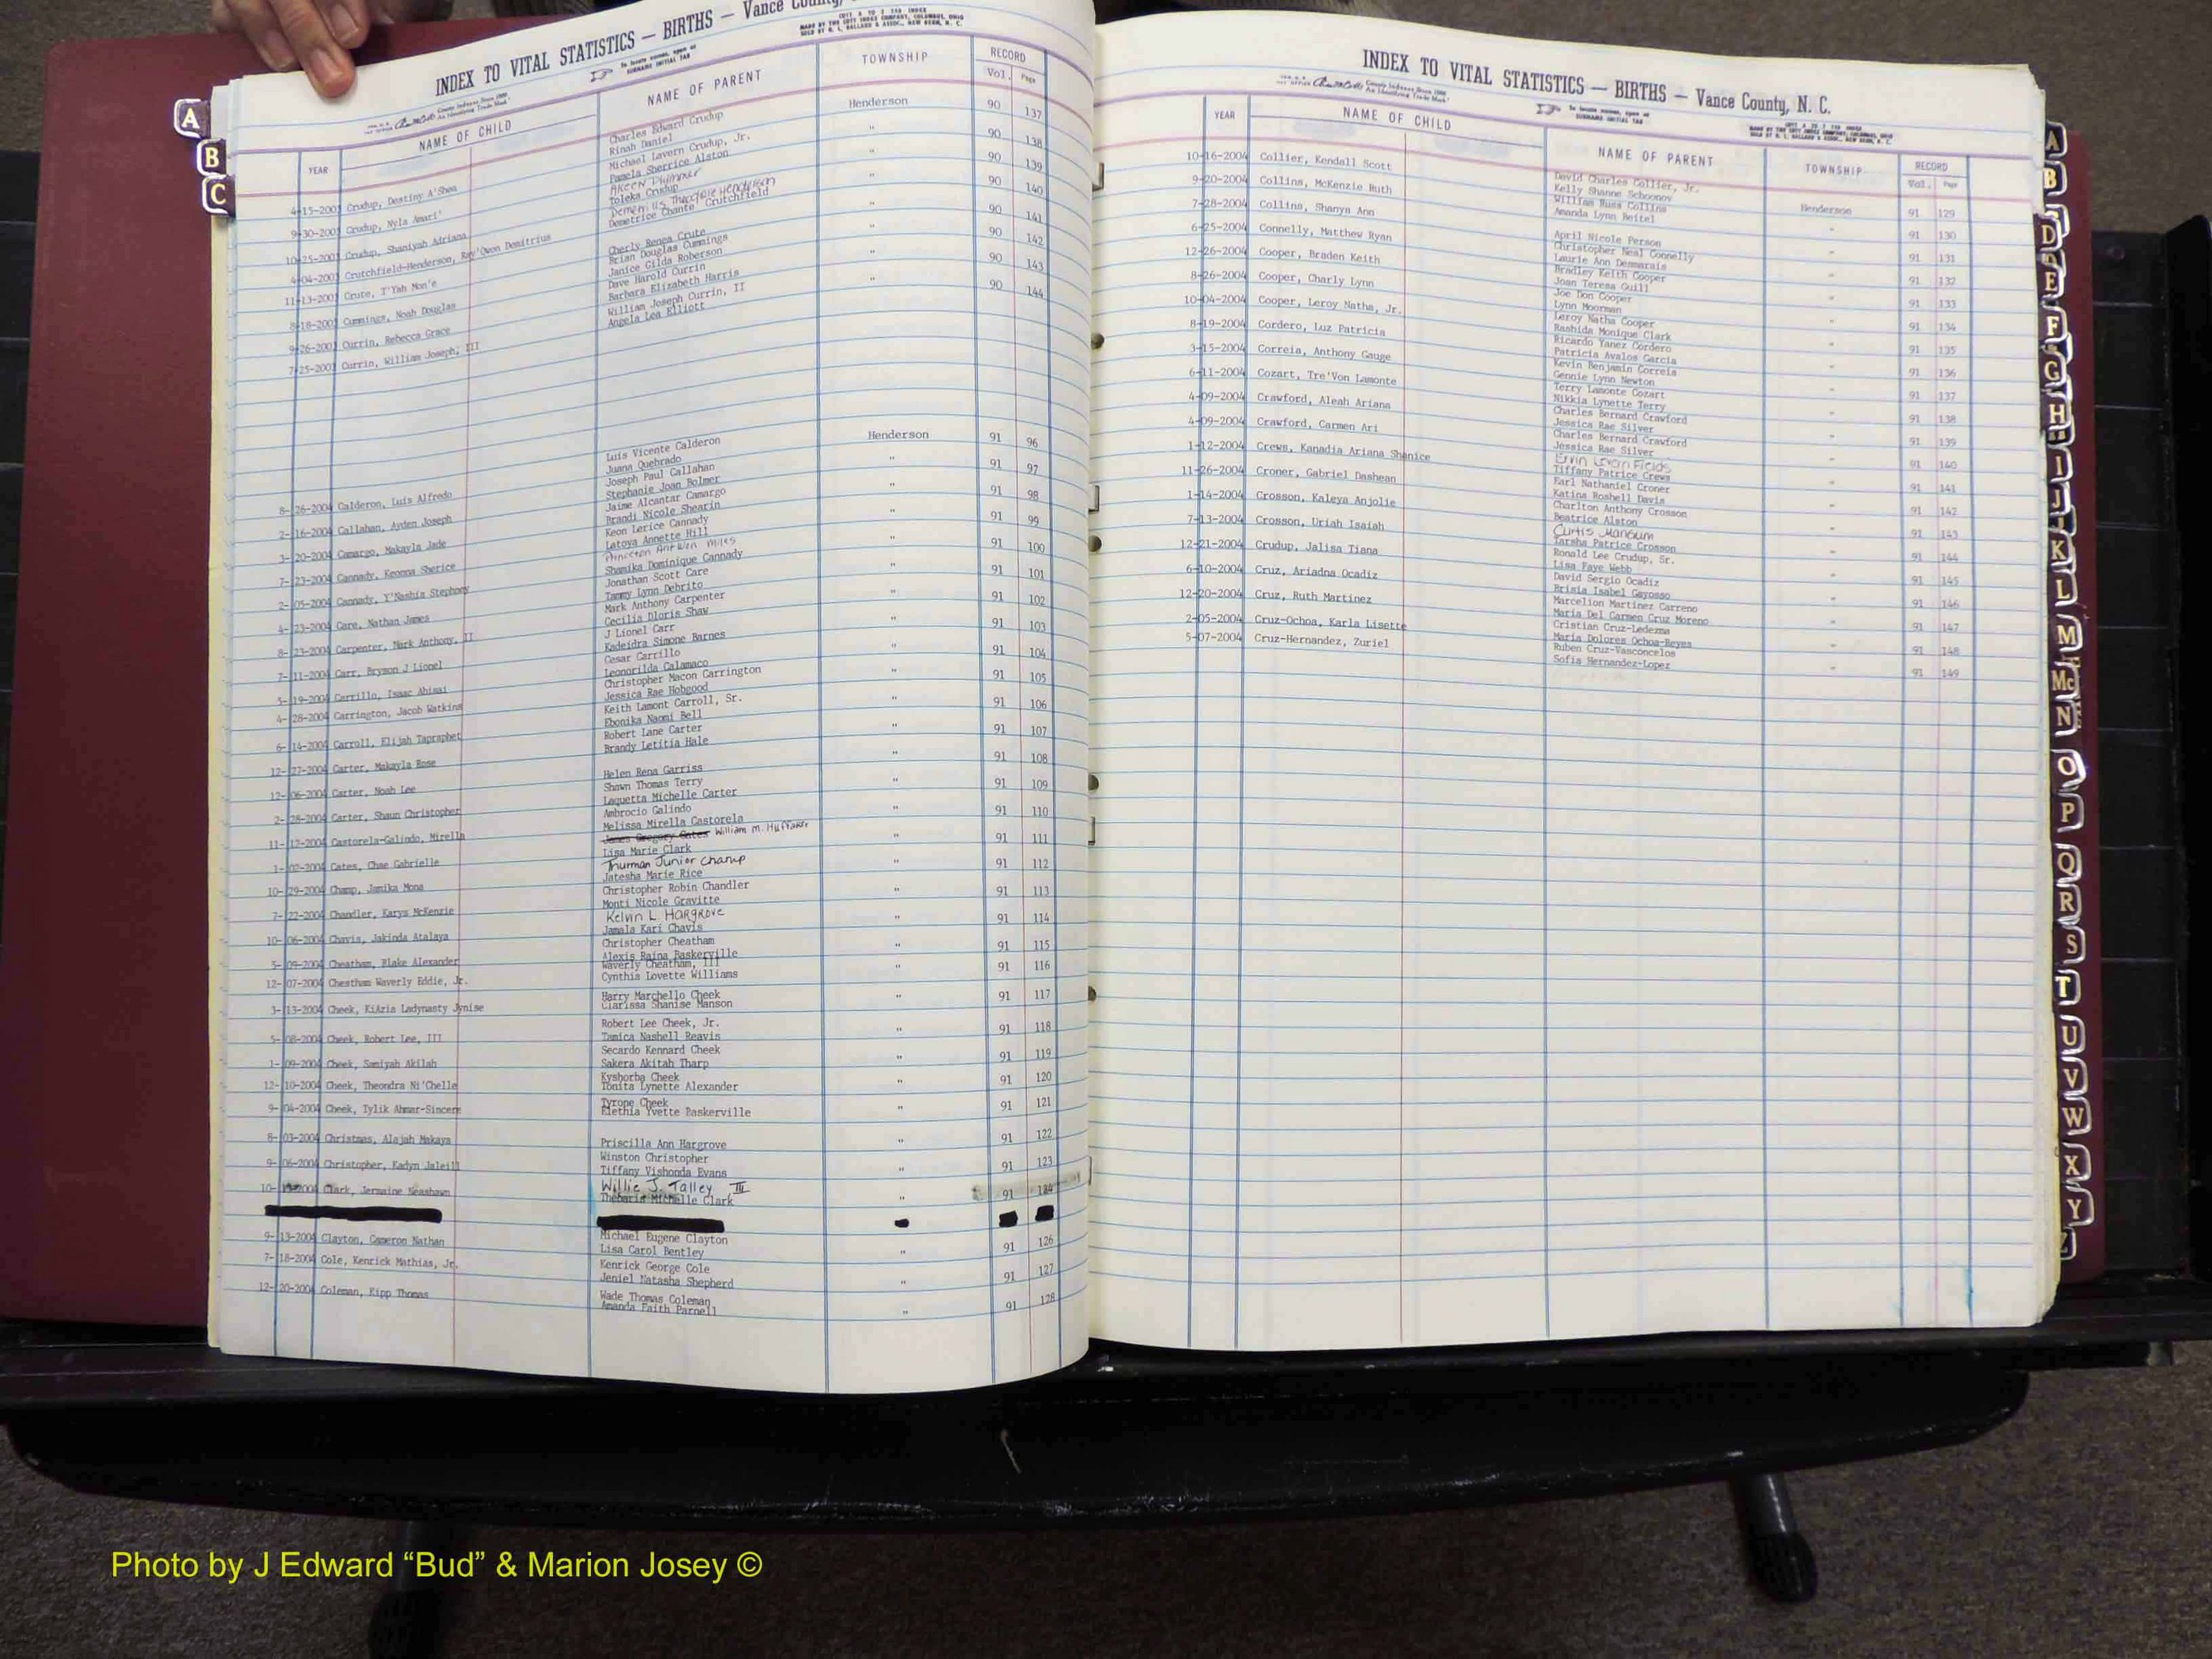 INDEX TO VITAL STATISTICS — BIRTHS — Vance County,
YEAR NAME OF CHILD NAME OF PARENT TOWNSHIP RECORD
Vol. Page
4-15-2003 Crudup, Destiny A'Shea Charles Edward Crudup Henderson 90 137
Rinah Daniel
9-30-2003 Crudup, Nyla Amari' Michael Lavern Crudup, Jr. " 90 138
Pamela Sherrice Alston
10-25-2003 Crudup, Shaniyah Adriana Akeen Plummer " 90 139
Toleka Crudup
4-04-2003 Crutchfield-Henderson, Ray'Quon Demitrius Henderson " 90 140
Demetrice Chante' Crutchfield
11-13-2003 Crute, T'Yah Mon'e Cherly Renea Crute " 90 141
8-18-2003 Cummings, Noah Douglas Brian Douglas Cummings " 90 142
Janice Gilda Roberson
9-26-2003 Currin, Rebecca Grace Dave Harold Currin " 90 143
Barbara Elizabeth Harris
7-25-2003 Currin, William Joseph, III William Joseph Currin, II " 90 144
Angela Lea Elliott
8-26-2004 Calderon, Luis Alfredo Luis Vicente Calderon Henderson 91 96
Juana Quebrado
2-16-2004 Callahan, Ayden Joseph Joseph Paul Callahan " 91 97
Stephanie Joan Bolmer
3-20-2004 Camargo, Makayla Jade Jaime Alcantar Camargo " 91 98
Brandi Nicole Shearin
7-23-2004 Cannady, Keonna Sherice Keon Lerice Cannady " 91 99
Latoya Annette Hill
2-05-2004 Cannady, Y'Nashia Stephony Princeton Antwon Miles " 91 100
Shamika Dominique Cannady
4-23-2004 Care, Nathan James Jonathan Scott Care " 91 101
Tammy Lynn Debrito
8-23-2004 Carpenter, Mark Anthony, II Mark Anthony Carpenter " 91 102
Cecilia Dloris Shaw
7-11-2004 Carr, Bryson J Lionel J Lionel Carr " 91 103
Kadeidra Simone Barnes
5-19-2004 Carrillo, Isaac Abisai Cesar Carrillo " 91 104
Leonorilda Calamaco
4-28-2004 Carrington, Jacob Watkins Christopher Macon Carrington " 91 105
Jessica Rae Hobgood
6-14-2004 Carroll, Elijah Tapraphet Keith Lamont Carroll, Sr. " 91 106
Ebonika Naomi Bell
12-27-2004 Carter, Makayla Rose Robert Lane Carter " 91 107
Brandy Letitia Hale
12-06-2004 Carter, Noah Lee Helen Rena Garriss " 91 108
2-28-2004 Carter, Shaun Christopher Shawn Thomas Terry " 91 109
Laquetta Michelle Carter
11-12-2004 Castorela-Galindo, Mirella Ambrocio Galindo " 91 110
Melissa Mirella Castorela
1-02-2004 Cates, Chae Gabrielle James Gregory Cates William M. Huffaker " 91 111
Lisa Marie Clark
10-29-2004 Champ, Jamika Mona Thurman Junior Champ " 91 112
Jatesha Marie Rice
7-22-2004 Chandler, Karys McKenzie Christopher Robin Chandler " 91 113
Monti Nicole Gravitte
10-06-2004 Chavis, Jakinda Atalaya Kelvin L Hargrove " 91 114
Jamala Kari Chavis
5-09-2004 Cheatham, Blake Alexander Christopher Cheatham " 91 115
Alexis Raina Baskerville
12-07-2004 Chestham Waverly Eddie, Jr. Waverly Cheatham, III " 91 116
Cynthia Lovette Williams
3-13-2004 Cheek, KiAzia Ladynasty Jynise Harry Marchello Cheek " 91 117
Clarissa Shanise Manson
5-08-2004 Cheek, Robert Lee, III Robert Lee Cheek, Jr. " 91 118
Tamica Nashell Reavis
1-09-2004 Cheek, Samiyah Akilah Secardo Kennard Cheek " 91 119
Sakera Akitah Tharp
12-10-2004 Cheek, Theondra Ni'Chelle Kyshorba Cheek " 91 120
Tonita Lynette Alexander
9-04-2004 Cheek, Tylik Ahmar-Sincere Tyrone Cheek " 91 121
Elethia Yvette Baskerville
8-03-2004 Christmas, Alajah Makaya Priscilla Ann Hargrove " 91 122
9-06-2004 Christopher, Kadyn Jaleill Winston Christopher " 91 123
Tiffany Vishonda Evans
10- 2004 Clark, Jermaine Keashawn Willie J. Talley III " 91 124
Thebaria Michelle Clark
9-13-2004 Clayton, Cameron Nathan Michael Eugene Clayton " 91 126
Lisa Carol Bentley
7-18-2004 Cole, Kenrick Mathias, Jr. Kenrick George Cole " 91 127
Jeniel Natasha Shepherd
12-20-2004 Coleman, Kipp Thomas Wade Thomas Coleman " 91 128
Amanda Faith Parnell
INDEX TO VITAL STATISTICS — BIRTHS — Vance County, N. C.
YEAR NAME OF CHILD NAME OF PARENT TOWNSHIP RECORD
Vol. Page
10-16-2004 Collier, Kendall Scott David Charles Collier, Jr. Henderson 91 129
Kelly Shanne Schoonov
9-20-2004 Collins, McKenzie Ruth William Russ Collins " 91 130
Amanda Lynn Beitel
7-28-2004 Collins, Shanya Ann April Nicole Person " 91 131
6-25-2004 Connelly, Matthew Ryan Christopher Neal Connelly " 91 132
Laurie Ann Desmarais
12-26-2004 Cooper, Braden Keith Bradley Keith Cooper " 91 133
Joan Teresa Quill
8-26-2004 Cooper, Charly Lynn Joe Don Cooper " 91 134
Lynn Moorman
10-04-2004 Cooper, Leroy Natha, Jr. Leroy Natha Cooper " 91 135
Rashida Monique Clark
8-19-2004 Cordero, Luz Patricia Ricardo Yanez Cordero " 91 136
Patricia Avalos Garcia
3-15-2004 Correia, Anthony Gauge Kevin Benjamin Correia " 91 137
Gennie Lynn Newton
6-11-2004 Cozart, Tre'Von Lamonte Terry Lamonte Cozart " 91 138
Nikkia Lynette Terry
4-09-2004 Crawford, Aleah Ariana Charles Bernard Crawford " 91 139
Jessica Rae Silver
4-09-2004 Crawford, Carmen Ari Charles Bernard Crawford " 91 140
Jessica Rae Silver
1-12-2004 Crews, Kanadia Ariana Shanice Ervin Levon Fields " 91 141
Tiffany Patrice Crews
11-26-2004 Croner, Gabriel Dashean Earl Nathaniel Croner " 91 142
Katina Roshell Davis
1-14-2004 Crosson, Kaleya Anjolie Charlton Anthony Crosson " 91 143
Beatrice Alston
7-13-2004 Crosson, Uriah Isaiah Curtis Mangum " 91 144
Tarsha Patrice Crosson
12-21-2004 Crudup, Jalisa Tiana Ronald Lee Crudup, Sr. " 91 145
Lisa Faye Webb
6-10-2004 Cruz, Ariadna Ocadiz David Sergio Ocadiz " 91 146
Brisia Isabel Gayosso
12-20-2004 Cruz, Ruth Martinez Marcelion Martinez Carreno " 91 147
Maria Del Carmen Cruz Moreno
2-05-2004 Cruz-Ochoa, Karla Lisette Cristian Cruz-Ledezma " 91 148
Maria Dolores Ochoa-Reyes
5-07-2004 Cruz-Hernandez, Zuriel Ruben Cruz-Vasconcelos " 91 149
Sofia Hernandez-Lopez
A
B
C
A
B
D
E
F
G
H
I
J
K
L
M
Mc
N
O
P
Q
R
S
T
U
V
W
X
Y
Z
Photo by J Edward “Bud” & Marion Josey ©